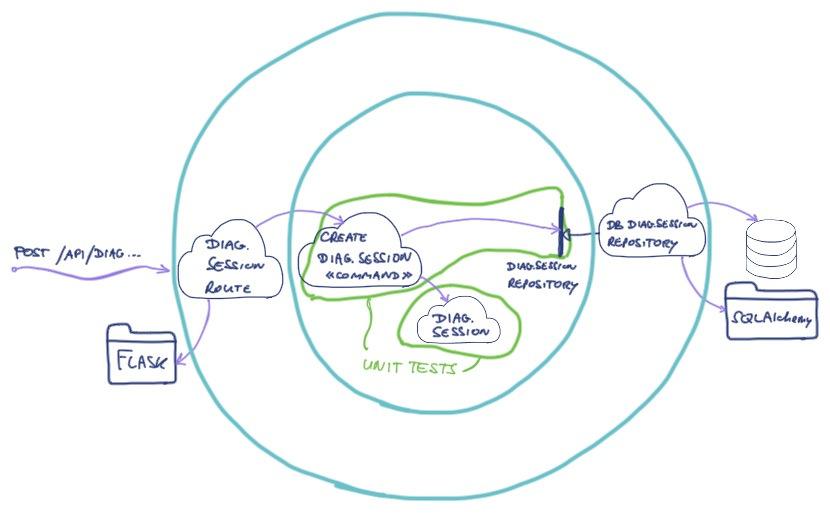 POST /API/DIAG...
DIAG.
SESSION
ROUTE
FLASK
CREATE
DIAG.SESSION
«COMMAND»
DIAG.
SESSION
UNIT TESTS
DIAG.SESSION
REPOSITORY
DB DIAG.SESSION
REPOSITORY
SQLAlchemy